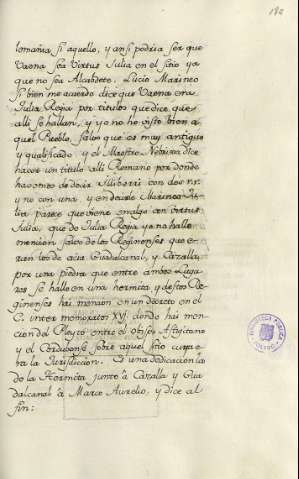 192
lomaña, si aquello, y ansi podria ser que
Vaena sea Virtus Julia en el sitio ya
que no sea Alcabdete. Lucio Marineo
si bien me acuerdo dice que Vaena era
Julia Regia por titulos que dice que
alli se hallan, y yo no he visto bien a
quel Pueblo, salvo que es muy antiguo
y qualificado y el Maestro Nebrixa dice
hacer un titulo alli Romano por donde
havemos de decir Illiborri con dos rr.
y no con una, y en decille Marineo Ju-
lia parece que viene en algo con Virtus
Julia, que de Julia Regia yo no hallo
mencion salvo de los Reginenses que e-
ran los de acia Guadalcanal, y Cazalla,
por una piedra que entre ambos Luga-
res se hallo en una hermita y destos Re-
ginenses hai mencion en un decreto en el
C. inter memoratos XVI. donde hai men-
cion del Pleyto entre el obispo Astigitano
y el Cordubense sobre aquel sitio cuya e-
ra la Jurisdiccion. Es una dedicacion la
de la Hermita junto à Cazalla y Gua-
dalcanal à Marco Aurelio, y dice al
fin: